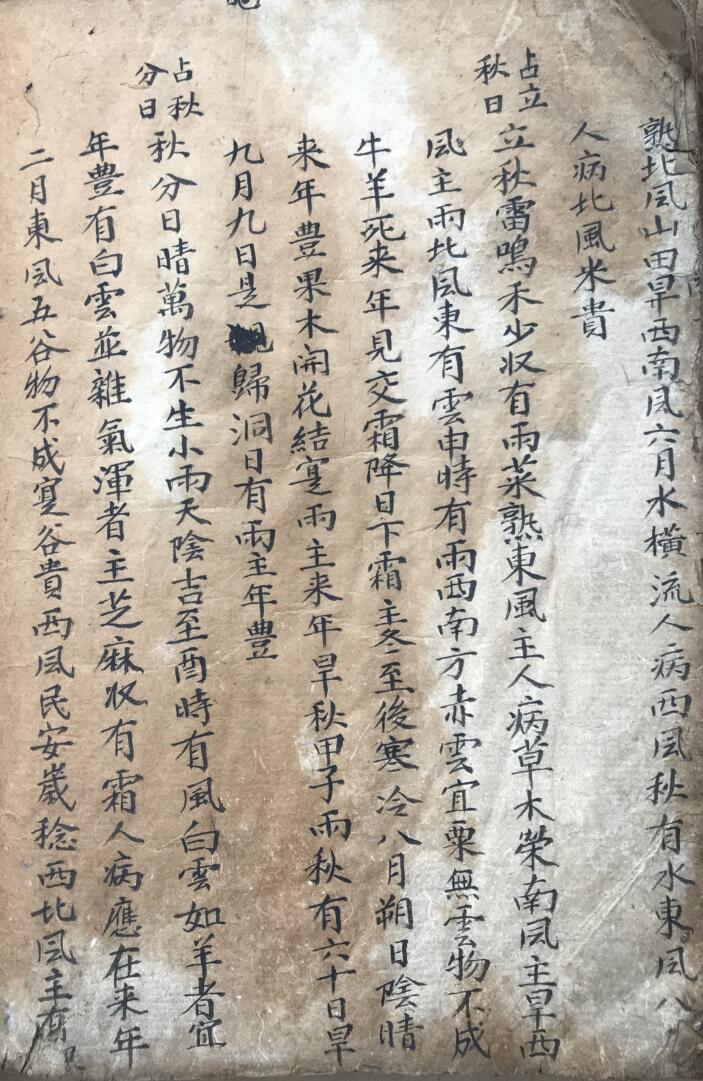 熟北凨山田旱西南凨六月水橫流人病西凨秋有水東凨八
人病北風米貴
占立秋日
立秋雷鳴禾少収有雨菜熟東風主人病草木榮南凨主旱西
凨主雨北凨東有雲申時有雨西南方赤雲宜粟無雲物不成
牛羊死来年見交霜降日下霜主冬至後寒冷八月朔日陰晴
来年豊果木開花結寔雨主来年旱秋甲子雨秋有六十日旱
九月九日是歸洞日有雨主年豊
占秋分日
秋分日晴萬物不生小雨天陰吉至酉時有風白雲如羊者宜
年豊有白雲並雜氣渾者主芝麻収有霜人病應在来年
二月東凨五谷物不成寔谷貴西凨民安歲稔西北凨主